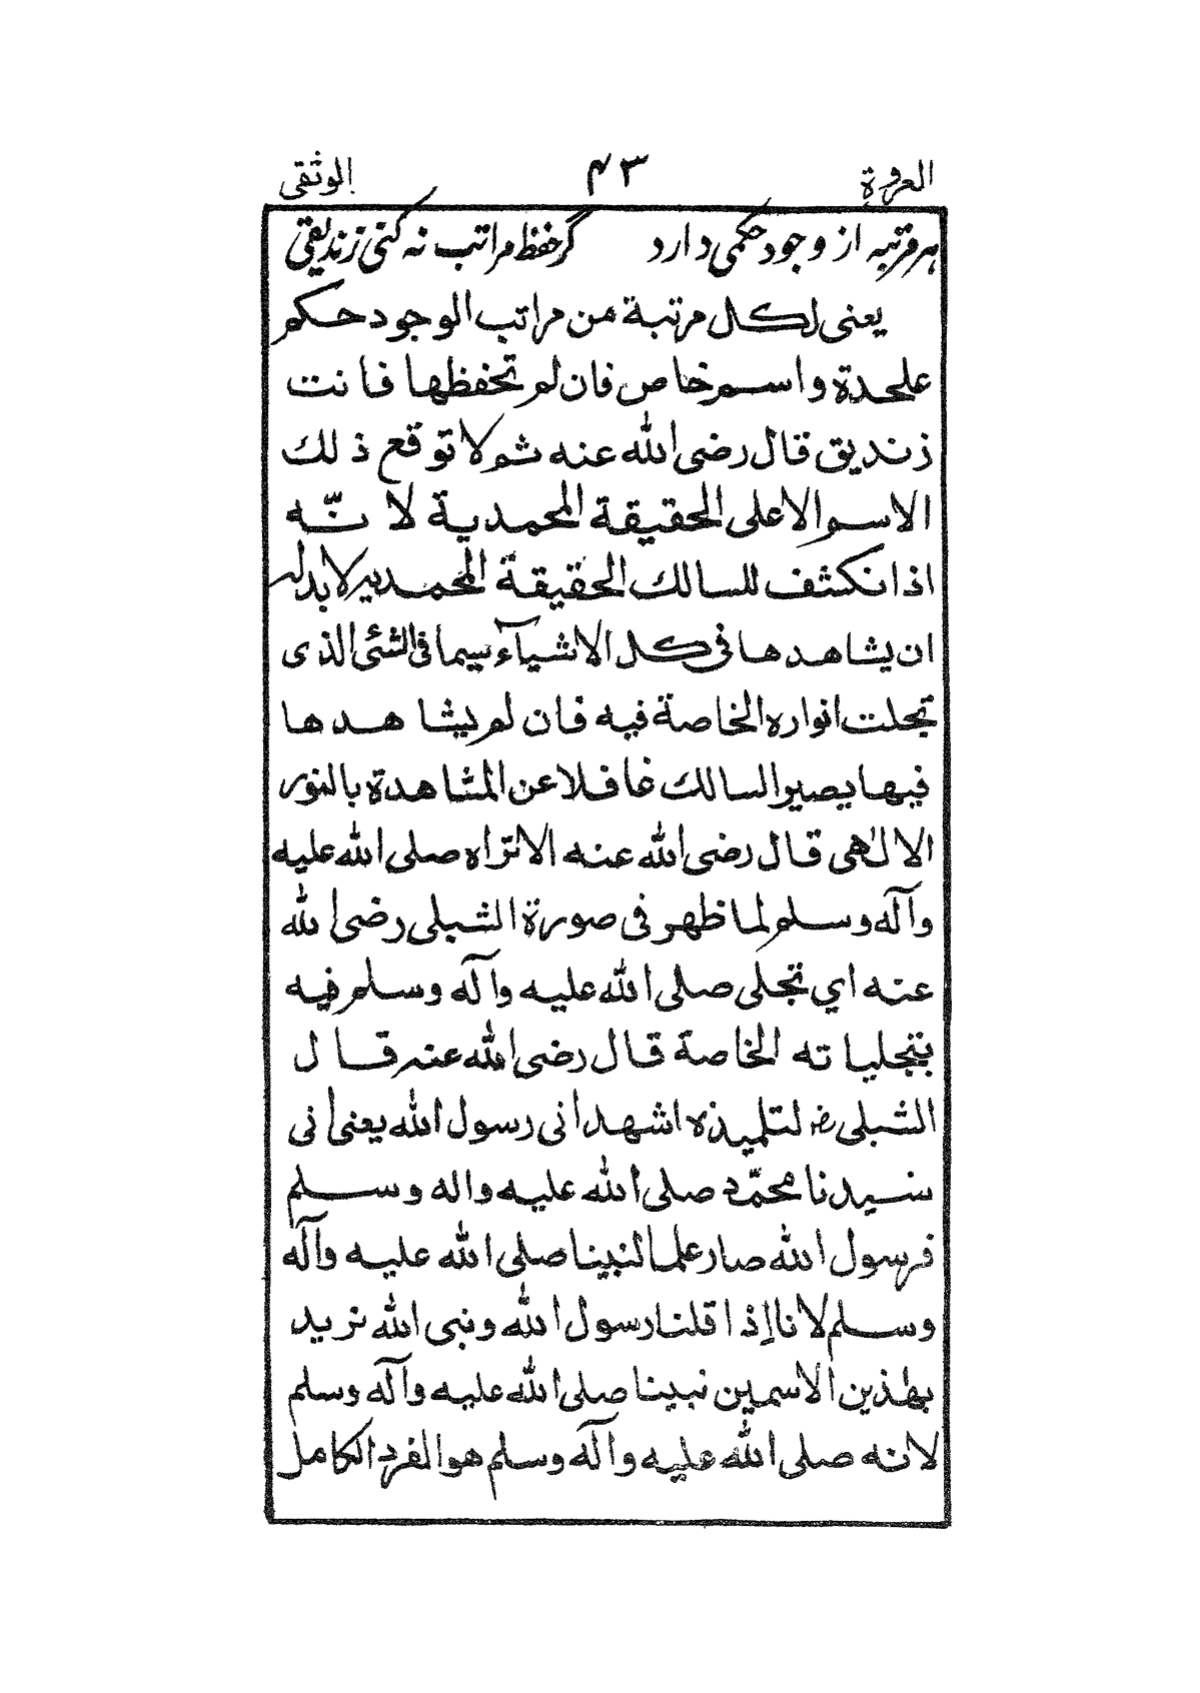 العروة ۴۳ الوثقى
هر مرتبه از وجود حکمی دارد گر حفظ مراتب نه کنی زندیقی
يعنى لكل مرتبة من مراتب الوجود حكم
علحدة واسم خاص فان لم تحفظها فانت
زنديق قال رضى الله عنه ثم لا توقع ذلك
الاسم الا على الحقيقة المحمدية لا نّه
اذا نكشف للسالك الحقيقة المحمديه لا بد له
ان يشاهدها فى كل الاشيآء سيما فى الشئ الذى
تجلت انواره الخاصة فيه فان لم يشاهدها
فيها يصير السالك غافلا عن المشاهدة بالنور
الالٰهى قال رضى الله عنه الا تراه صلى الله عليه
وآله وسلم لما ظهر فى صورة الشبلى رضى الله
عنه اي تجلى صلى الله عليه وآله وسلم فيه
بتجلياته الخاصة قال رضى الله عنه قال
الشبلى رض لتلميذه اشهد انى رسول الله يعنى انى
سيدنا محمّد صلى الله عليه واله وسلم
فرسول الله صار علما لنبينا صلى الله عليه وآله
وسلم لانا اذا قلنا رسول الله ونبى الله نريد
بهٰذين الاسمين نبينا صلى الله عليه وآله وسلم
لانه صلى الله عليه وآله وسلم هو الفرد الكامل